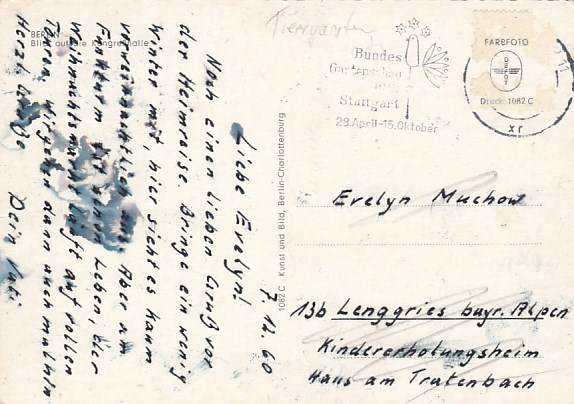 BERLIN
Blick auf die Kongreßhalle
Tiergarten
7.12.60
Liebe Evelyn!
Noch einen lieben Gruß vor
der Heimreise. Bringe ein wenig
Winter mit, hier sieht es kaum
Aber am
Funkturm Leben, der
Weihnachtsmarkt läuft auf vollen
Touren. dann auch mal hin
Herzl. Grüße Dein Vati
1082 C Kunst und Bild, Berlin-Charlottenburg
Bundes
Gartenschau
Stuttgart
28. April-15. Oktober
FARBFOTO
DEFOT
Druck: 1082 C
xr
Evelyn Muchow
13b Lenggries bayr. Alpen
Kindererholungsheim
Haus am Tratenbach